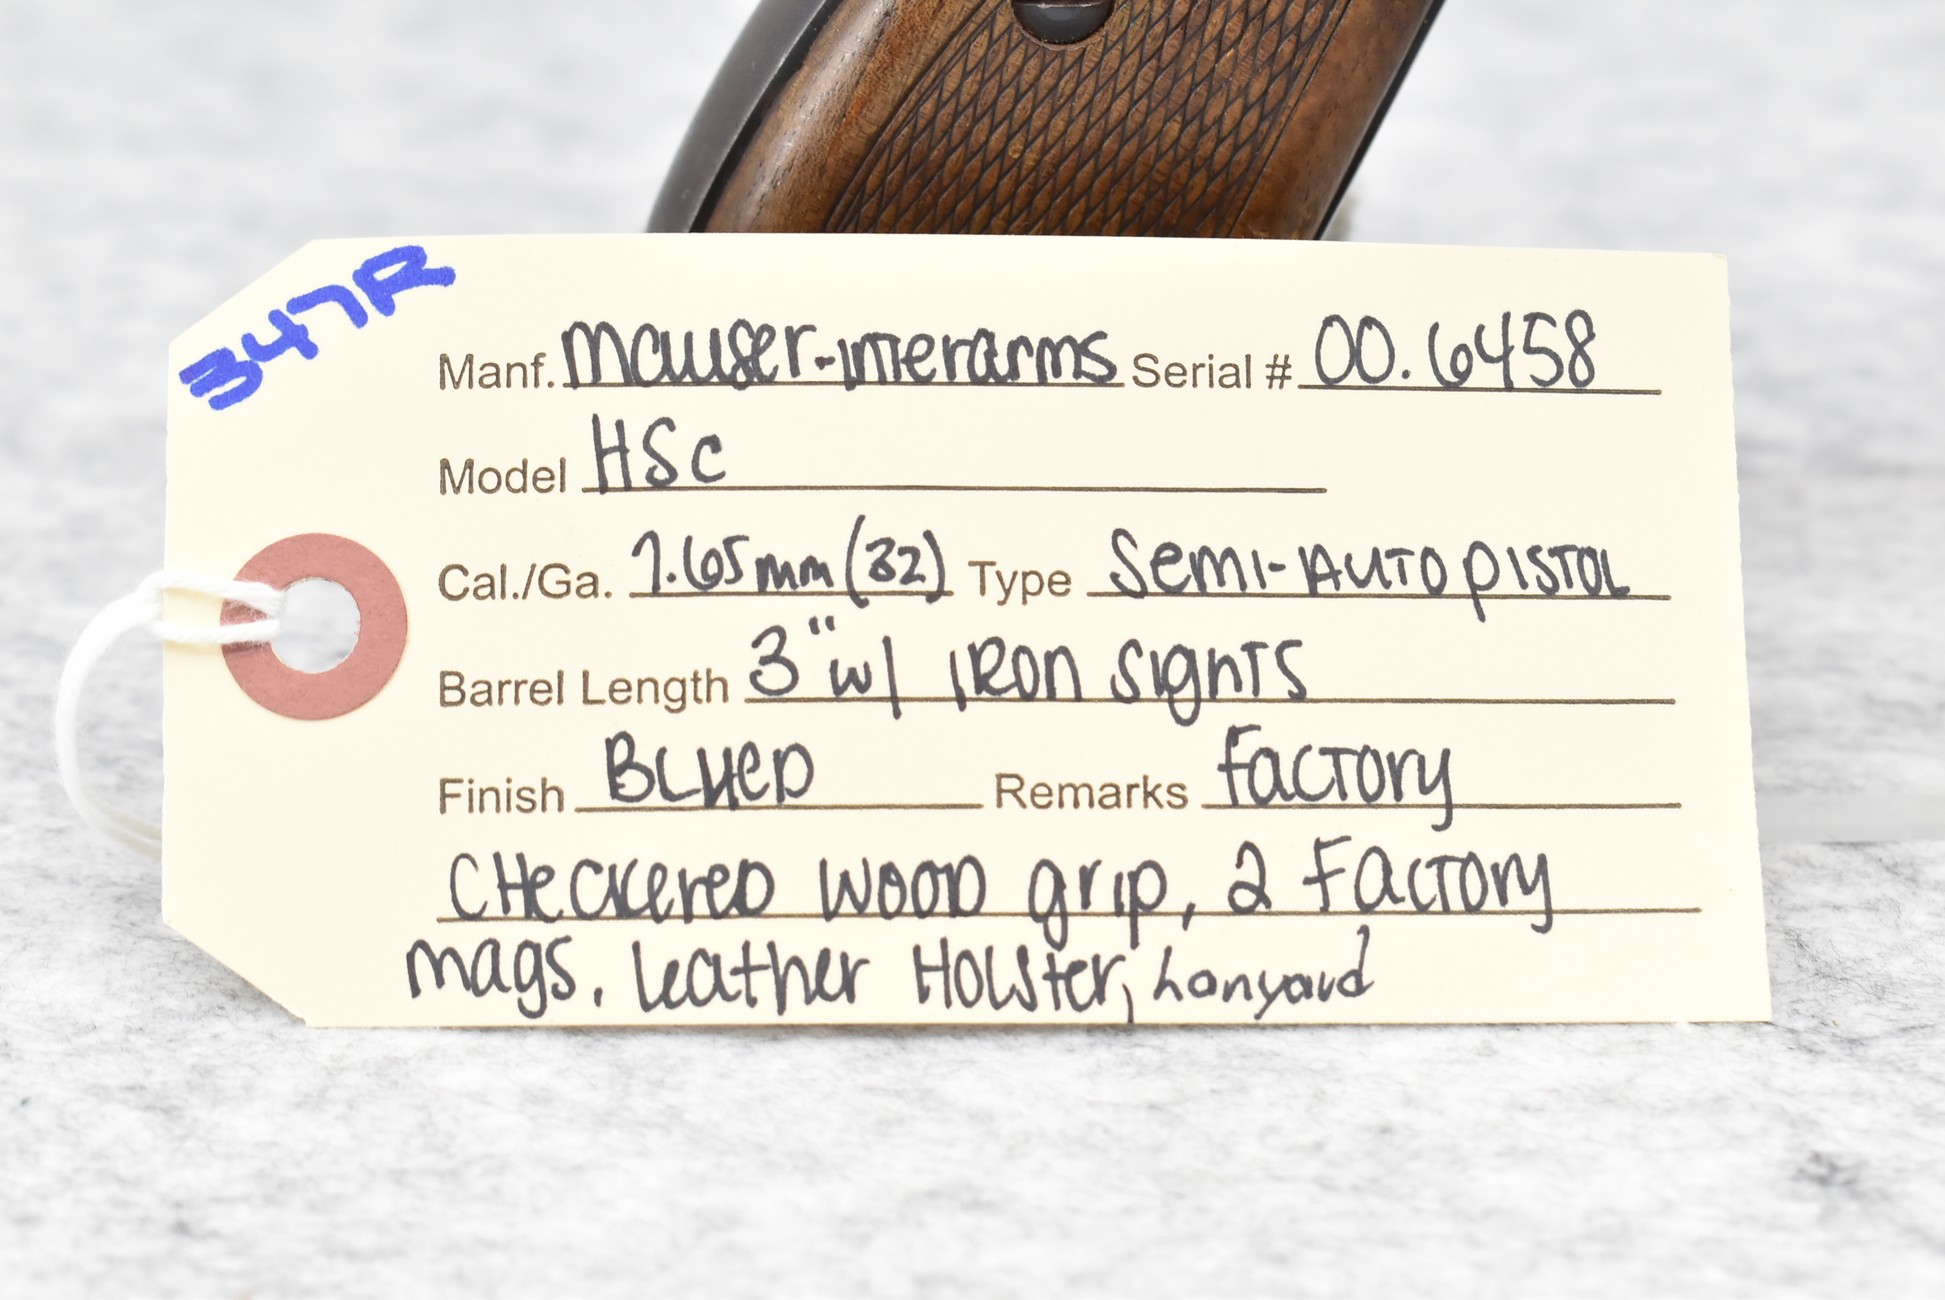 347R
Manf. Mauser-Interarms Serial # 00.6458
Model HSc
Cal./Ga. 7.65mm (32) Type Semi-Auto Pistol
Barrel Length 3" w/ Iron Sights
Finish Blued Remarks Factory
Checkered Wood grip, 2 Factory
mags, Leather Holster, Lanyard